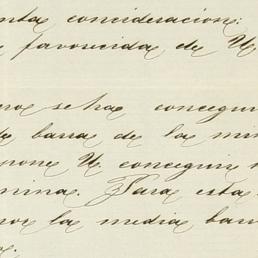 nta concideracion:
favorecida de U
se ha conceguir
barra de las min
pone U. conceguir
mina. Para esta
por la media barr